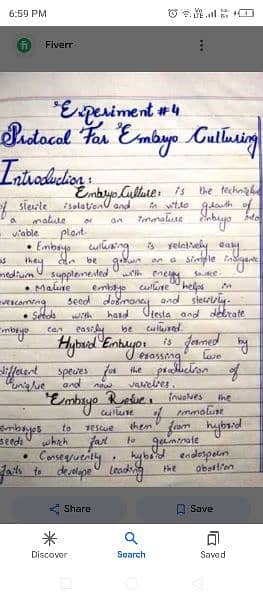 6:59 PM
Fiverr
Experiment #4
Protocol For Embryo Culturing
Introduction:
Embryo Culture: is the technique
of sterile isolation and in vitro growth of
a mature or an immature embryo into
viable plant.
• Embryo culturing is relatively easy
as they can be grown on a simple inorganic
medium supplemented with energy source.
• Mature embryo culture helps in
overcoming seed dormancy and sterility.
• Seeds with hard testa and delicate
embryo can easily be cultured.
Hybrid Embryo: is formed by
crossing two
different species for the production of
unique and new varieties.
Embryo Rescue: involves the
culture of immature
embryos to rescue them from hybrid
seeds which fail to germinate
• Consequently, hybrid endosperm
fails to develope leading the abortion
Share
Save
Discover
Search
Saved